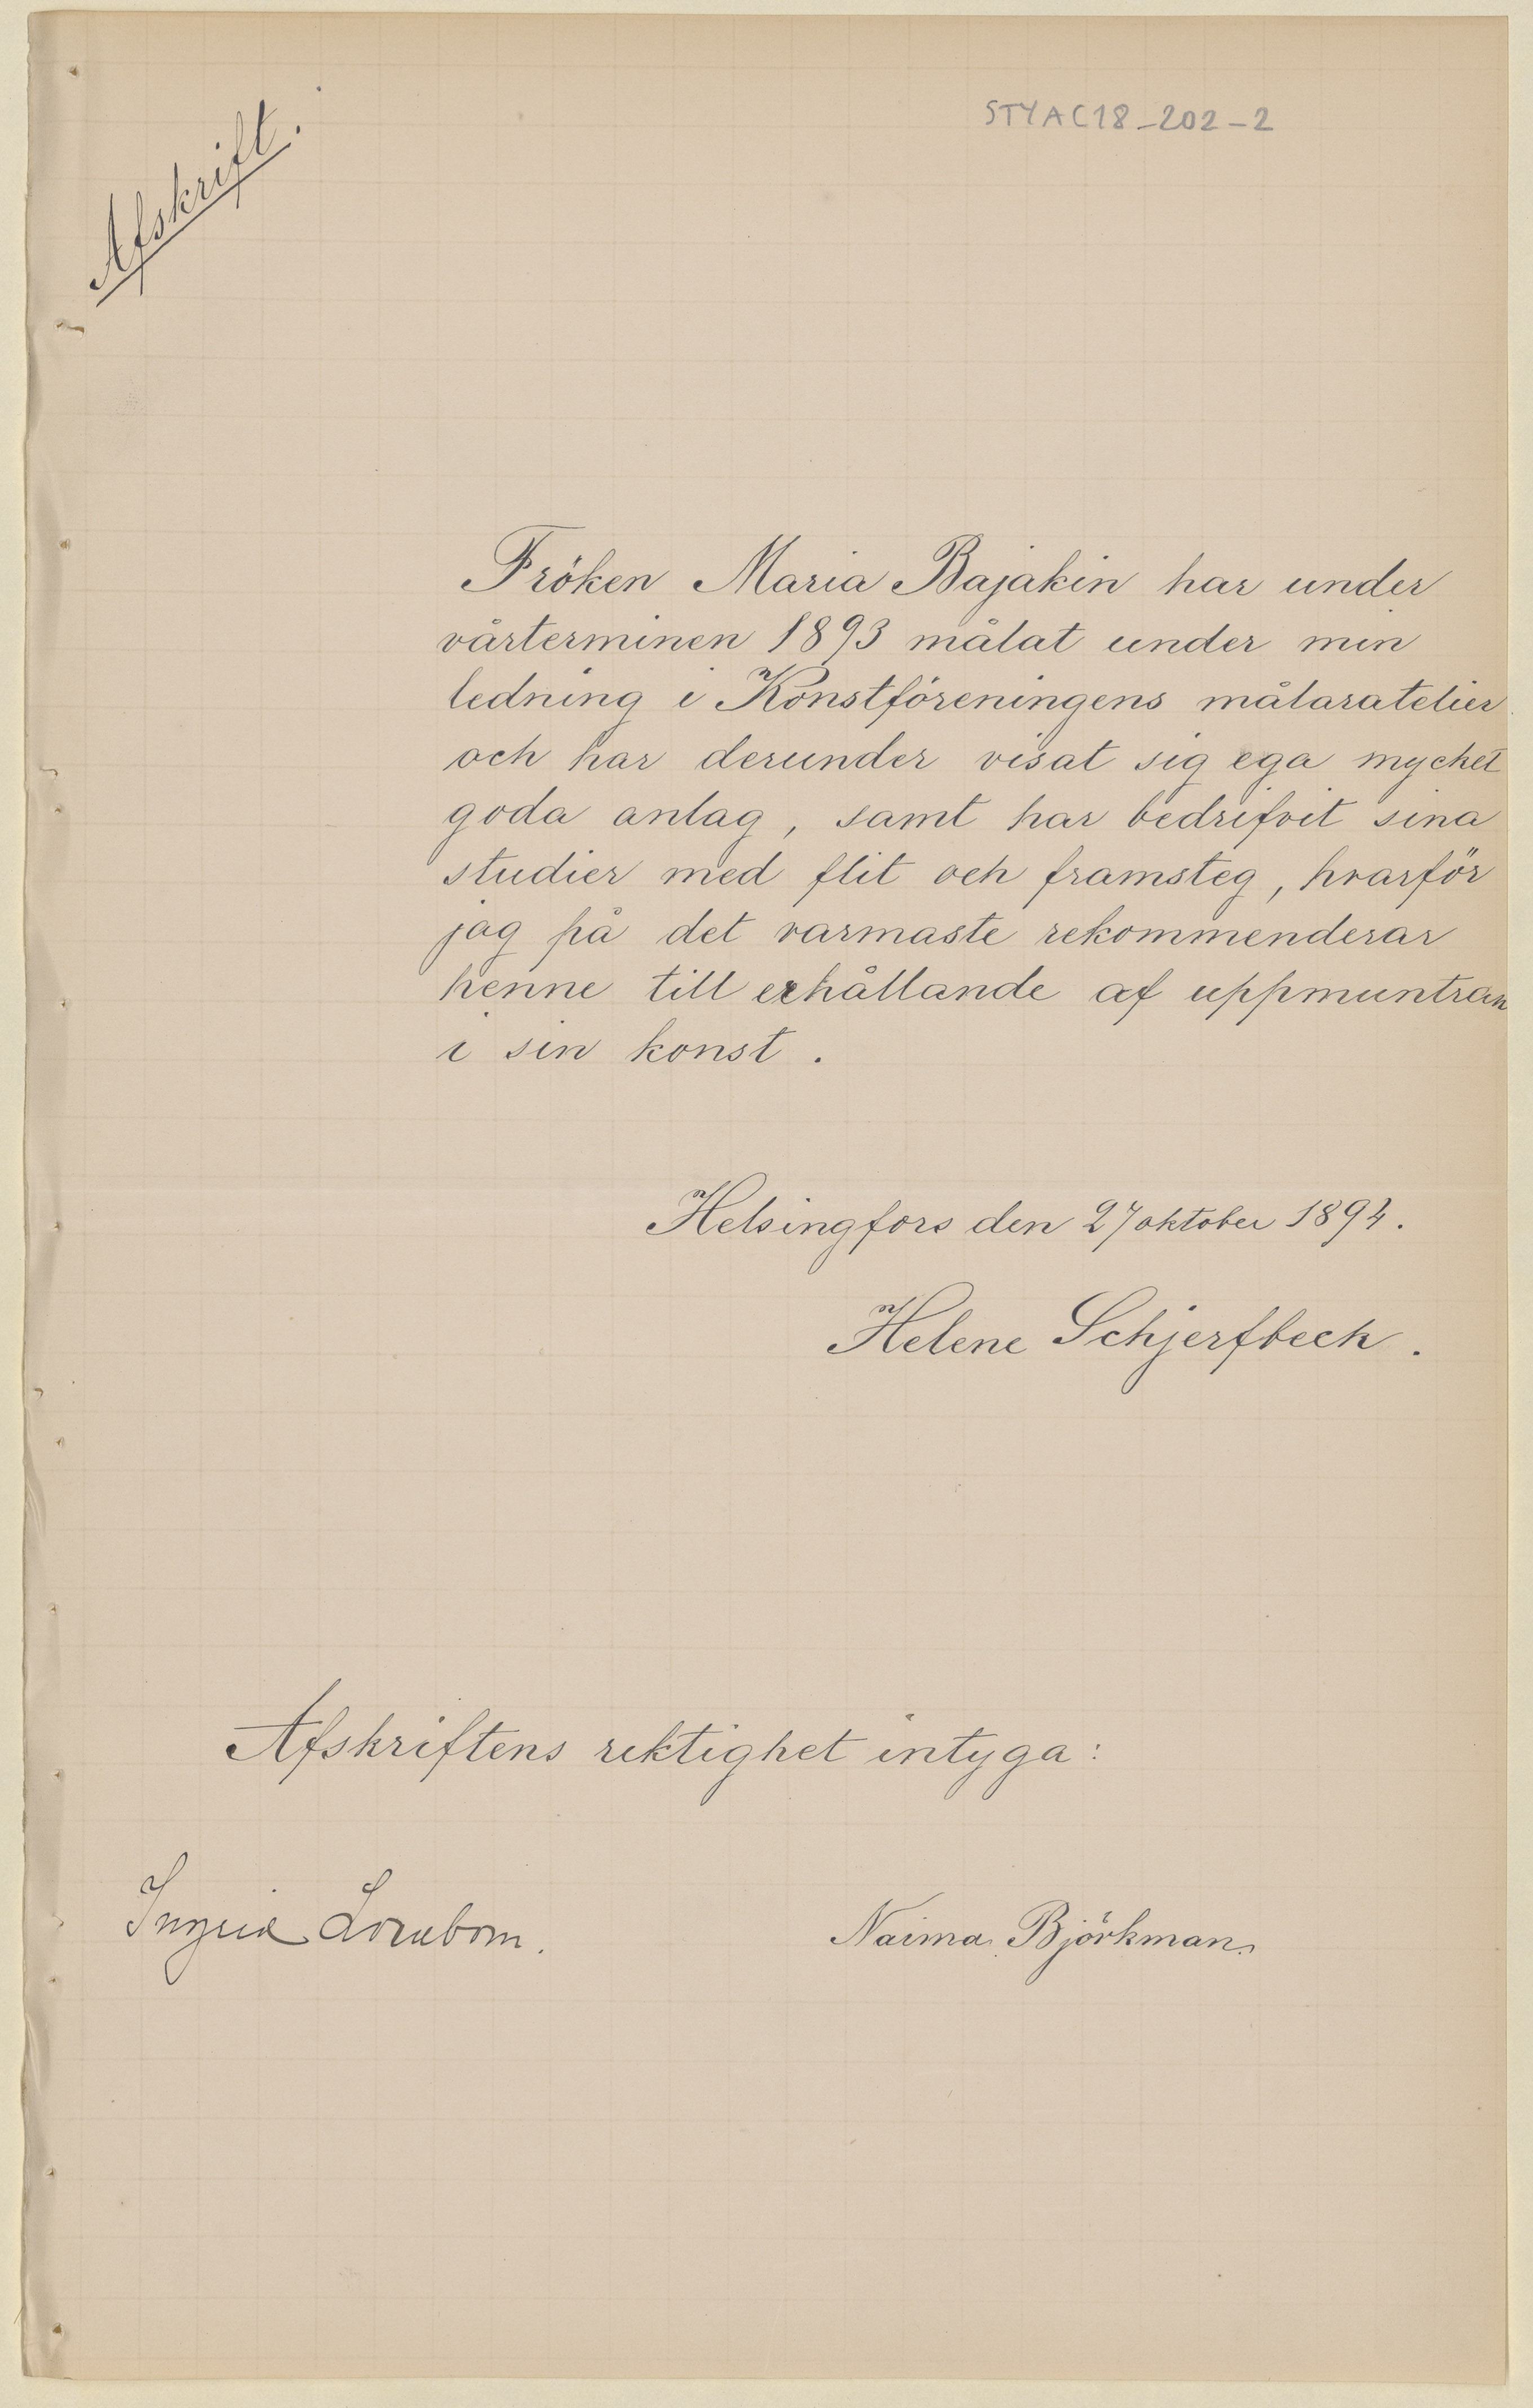 STYAC18-202-2
Afskrift.
Fröken Maria Bajakin har under
vårterminen 1893 målat under min
ledning i Konstföreningens målaratelier
och har derunder visat sig ega mycket
goda anlag, samt har bedrifvit sina
studier med flit och framsteg, hvarför
jag på det varmaste rekommenderar
henne till erhållande af uppmuntran
i sin konst.
Helsingfors den 27 oktober 1894.
Helene Schjerfbeck.
Afskriftens riktighet intyga:
Ingrid
Naima Björkman.